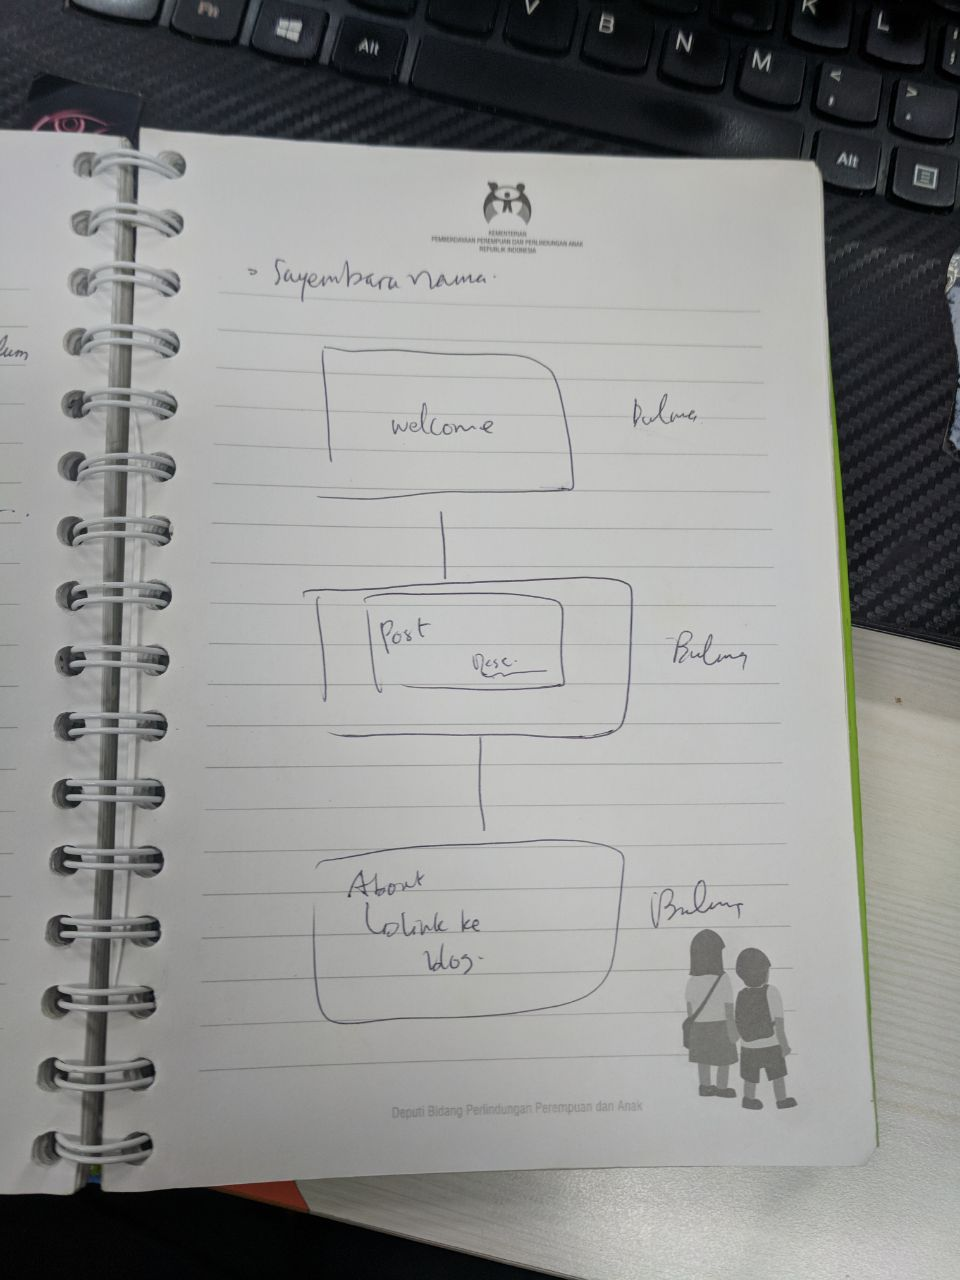 Fn
Alt
V
B
N
M
K
L
<
,
>
.
Alt
KEMENTERIAN
PEMBERDAYAAN PEREMPUAN DAN PERLINDUNGAN ANAK
REPUBLIK INDONESIA
Sayembara nama.
welcome
Post
Desc.
About
link ke
blog.
Deputi Bidang Perlindungan Perempuan dan Anak